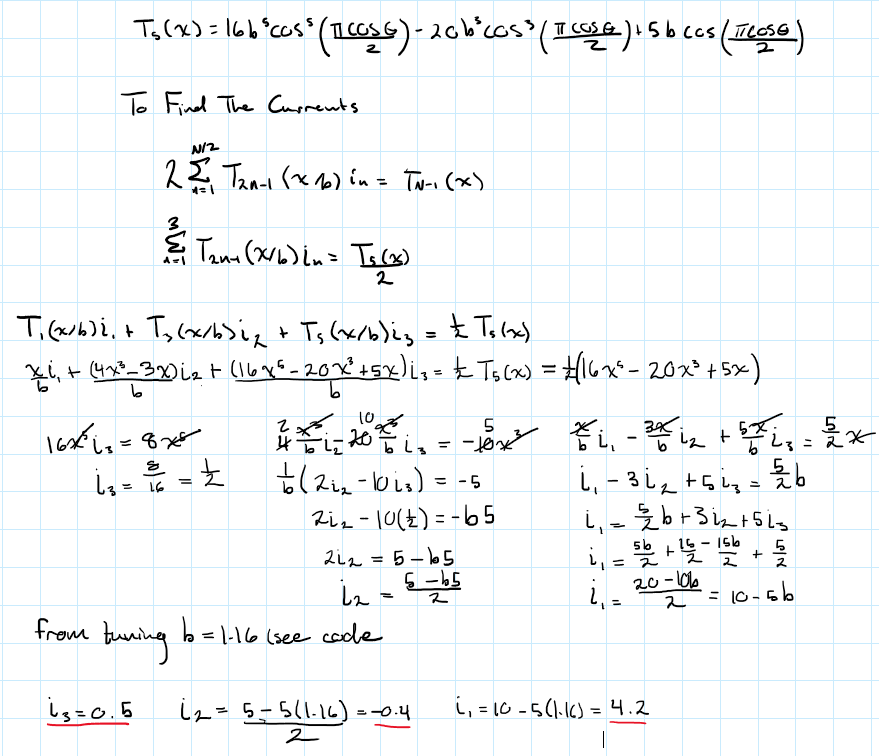 T₅(x) = 16b⁵cos⁵(πcosθ/2) - 20b³cos³(πcosθ/2) + 5b cos(πcosθ/2)
To Find The Currents
2 Σ_{n=1}^{N/2} T_{2n-1}(x/b) i_n = T_{N-1}(x)
Σ_{n=1}^{3} T_{2n-1}(x/b) i_n = T₅(x)/2
T₁(x/b)i₁ + T₃(x/b)i₂ + T₅(x/b)i₃ = ½ T₅(x)
x/b i₁ + (4x³-3x)/b i₂ + (16x⁵-20x³+5x)/b i₃ = ½ T₅(x) = ½(16x⁵ - 20x³ + 5x)
16x⁵ i₃ = 8x⁵
i₃ = 8/16 = 1/2
2 10 5
4 x³/b i₂ - 20 x³/b i₃ = -10x³
1/b (2i₂ - 10i₃) = -5
2i₂ - 10(½) = -b5
2i₂ = 5 - b5
i₂ = (5 - b5)/2
x/b i₁ - 3x/b i₂ + 5x/b i₃ = 5/2 x
i₁ - 3i₂ + 5i₃ = 5/2 b
i₁ = 5/2 b + 3i₂ + 5i₃
i₁ = 5b/2 + 15/2 - 15b/2 + 5/2
i₁ = (20 - 10b)/2 = 10 - 5b
from tuning b = 1.16 (see code
i₃ = 0.5 i₂ = (5 - 5(1.16))/2 = -0.4 i₁ = 10 - 5(1.16) = 4.2